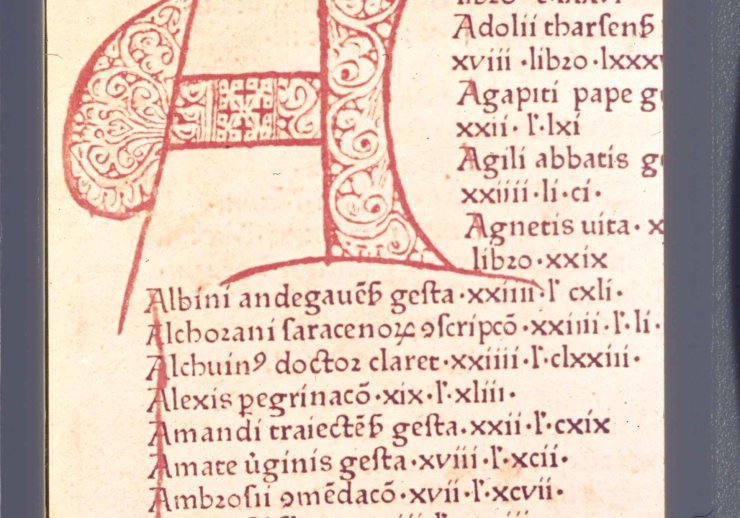 A
Adolii tharsenẜ
xviii ·libro·lxxxv
Agapiti pape g
xxii· l̛·lxi
Agili abbatis g
xxiiii·li·ci·
Agnetis uita· x
libro·xxix
Albini andegauēẜ gesta·xxiiii·l̛ cxli·
Alchorani ſaracenoꝝ ꝯſcripcō·xxiiii·l̛·li·
Alchuinꝰ doctor claret·xxiiii·l̛·clxxiii·
Alexis pegrinacō·xix·l̛·xliii·
Amandi traiectēẜ geſta·xxii·l̛·cxix
Amate u̓ginis geſta·xviii·l̛·xcii·
Ambroſii ꝯmēdacō·xvii·l̛·xcvii·